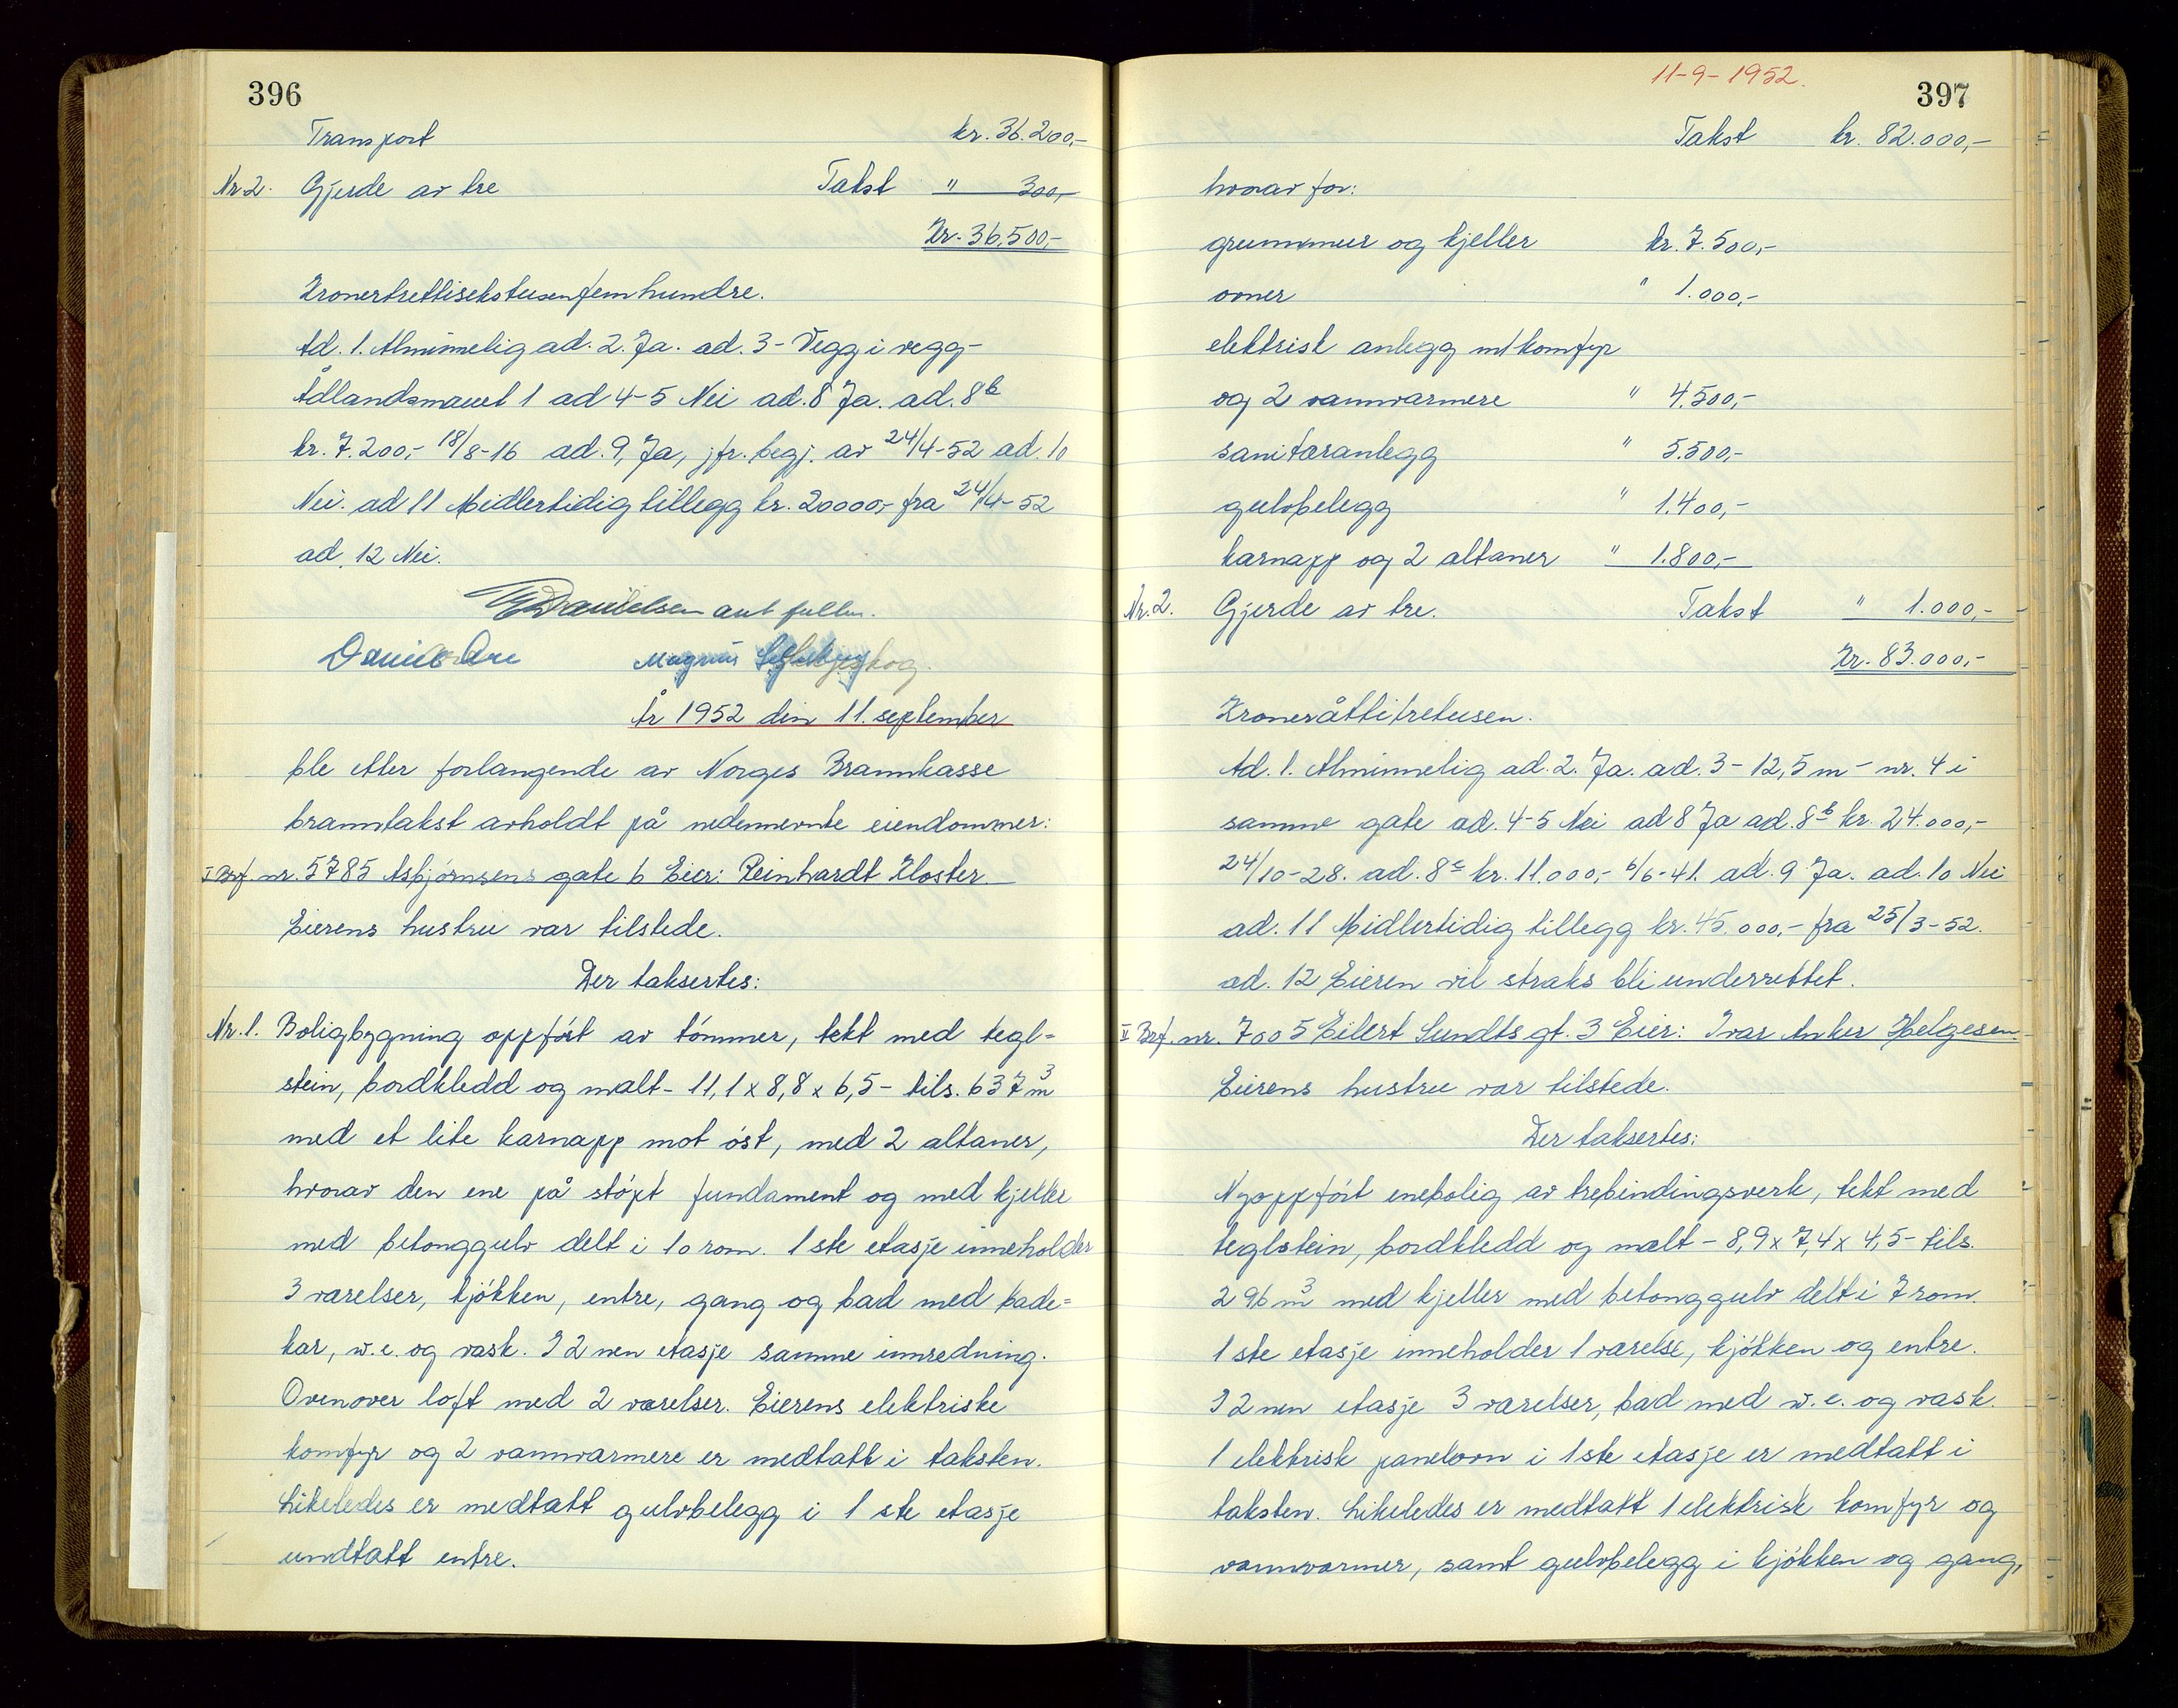 396
Transport kr. 36.200,-
Nr. 2. Gjerde av tre Takst " 300,-
Kr. 36.500,-
Kronertrettisekstusenfemhundre.
Ad. 1. Alminnelig ad. 2. Ja. ad. 3 - Vegg i vegg -
Ådlandsmauet 1 ad 4-5 Nei ad. 8 Ja. ad. 8b
kr. 7.200,- 18/8-16 ad. 9, Ja, jfr. begj. av 24/4-52 ad. 10
Nei. ad 11 Midlertidig tillegg kr. 20000,- fra 24/4-52
ad. 12 Nei.
Danielsen aut fullm.
Daniel Magnus
År 1952 den 11. september
ble etter forlangende av Norges Brannkasse
branntakst avholdt på nedennevnte eiendommer:
I Brf. nr. 5785 Asbjørnsens gate 6 Eier: Reinhardt Kloster
Eierens hustru var tilstede.
Der taksertes:
Nr. 1. Boligbygning oppført av tømmer, tekt med tegl=
stein, bordkledd og malt - 11,1 x 8,8 x 6,5 - tils. 637 m3
med et lite karnapp mot øst, med 2 altaner,
hvorav den ene på støpt fundament og med kjeller
med betonggulv delt i 10 rom. 1ste etasje inneholder
3 værelser, kjøkken, entre, gang og bad med bade=
kar, w.c. og vask. I 2nen etasje samme innredning.
Ovenover loft med 2 værelser. Eierens elektriske
komfyr og 2 vannvarmere er medtatt i taksten.
Likeledes er medtatt gulvbelegg i 1ste etasje
undtatt entre.
11-9-1952.
397
Takst kr. 82.000,-
hvorav for:
grunnmur og kjeller kr. 7.500,-
ovner " 1.000,-
elektrisk anlegg m/komfyr
og 2 vannvarmere " 4.500,-
sanitæranlegg " 5.500,-
gulvbelegg " 1.400,-
karnapp og 2 altaner " 1.800,-
Nr. 2. Gjerde av tre. Takst " 1.000,-
Kr. 83.000,-
Kroneråttitretusen.
Ad. 1. Alminnelig ad. 2. Ja. ad. 3 - 12,5 m - nr. 4 i
samme gate ad. 4-5 Nei ad 8 Ja ad. 8b kr. 24.000,-
24/10-28. ad. 8c kr. 11.000,- 6/6-41. ad. 9 Ja. ad. 10 Nei
ad. 11 Midlertidig tillegg kr. 45.000,- fra 25/3-52.
ad. 12 Eieren vil straks bli underrettet.
II Brf. nr. 7005 Eilert Sundts gt. 3 Eier: Ivar Anker Helgesen.
Eierens hustru var tilstede.
Der taksertes:
Nyoppført enebolig av trebindingsverk, tekt med
teglstein, bordkledd og malt - 8,9 x 7,4 x 4,5 - tils.
296 m3 med kjeller med betonggulv delt i 7 rom.
1ste etasje inneholder 1 værelse, kjøkken og entre.
I 2nen etasje 3 værelser, bad med w.c. og vask.
1 elektrisk panelovn i 1ste etasje er medtatt i
taksten. Likeledes er medtatt 1 elektrisk komfyr og
vannvarmer, samt gulvbelegg i kjøkken og gang,